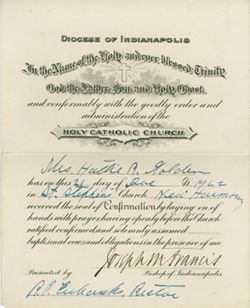 DIOCESE OF INDIANAPOLIS
In the Name of the Holy and ever blessed Trinity
God the Father, Son, and Holy Ghost,
and conformably with the goodly order and
administration of the
HOLY CATHOLIC CHURCH
Mrs. Hattie R. Golden
has on this 21 day of A.D. 1902
in St. Stephens Church, New Harmony
received the seal of Confirmation by laying on of
hands with prayer having openly before the Church
ratified confirmed and solemnly assumed
baptismal vows and obligations in the presence of me
Joseph M. Francis
Presented by Bishop of Indianapolis
Rector